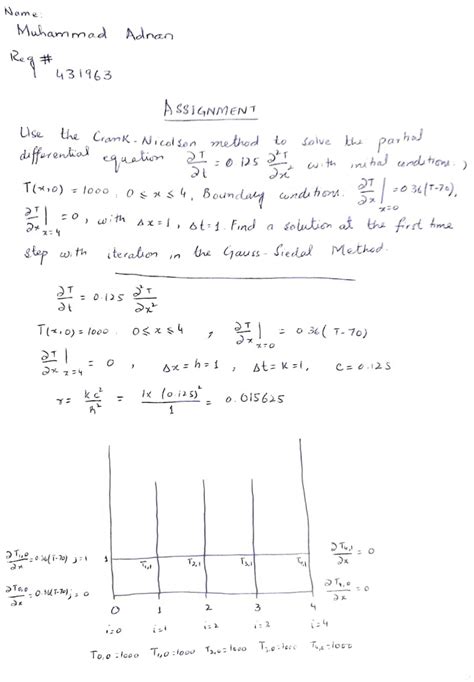 Name:
Muhammad Adnan
Reg #
431963
ASSIGNMENT
Use the Crank-Nicolson method to solve the partial
differential equation ∂T/∂t = 0.125 ∂²T/∂x² with initial conditions.,
T(x,0) = 1000, 0 ≤ x ≤ 4, Boundary conditions. ∂T/∂x|x=0 = 0.36(T-70),
∂T/∂x|x=4 = 0, with Δx=1, Δt=1. Find a solution at the first time
step with iteration in the Gauss-Siedal Method.
∂T/∂t = 0.125 ∂²T/∂x²
T(x,0) = 1000. 0 ≤ x ≤ 4, ∂T/∂x|x=0 = 0.36(T-70)
∂T/∂x|x=4 = 0, Δx=h=1, Δt=K=1, C=0.125
r = kc²/h² = 1x(0.125)²/1 = 0.015625
∂T1,0/∂x = 0.36(T-70) j=1 1 T1,1 T2,1 T3,1 T4,1 ∂T4,1/∂x = 0
∂T0,0/∂x = 0.36(T-70) j=0 ∂T4,0/∂x = 0
0 1 2 3 4
i=0 i=1 i=2 i=3 i=4
T0,0=1000 T1,0=1000 T2,0=1000 T3,0=1000 T4,0=1000